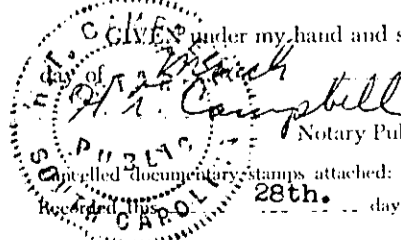 GIVEN under my hand and s
day of March
H. r. Campbell
Notary Pub
Cancelled documentary stamps attached:
Recorded this 28th. day
PUBLIC
SOUTH CAROLI